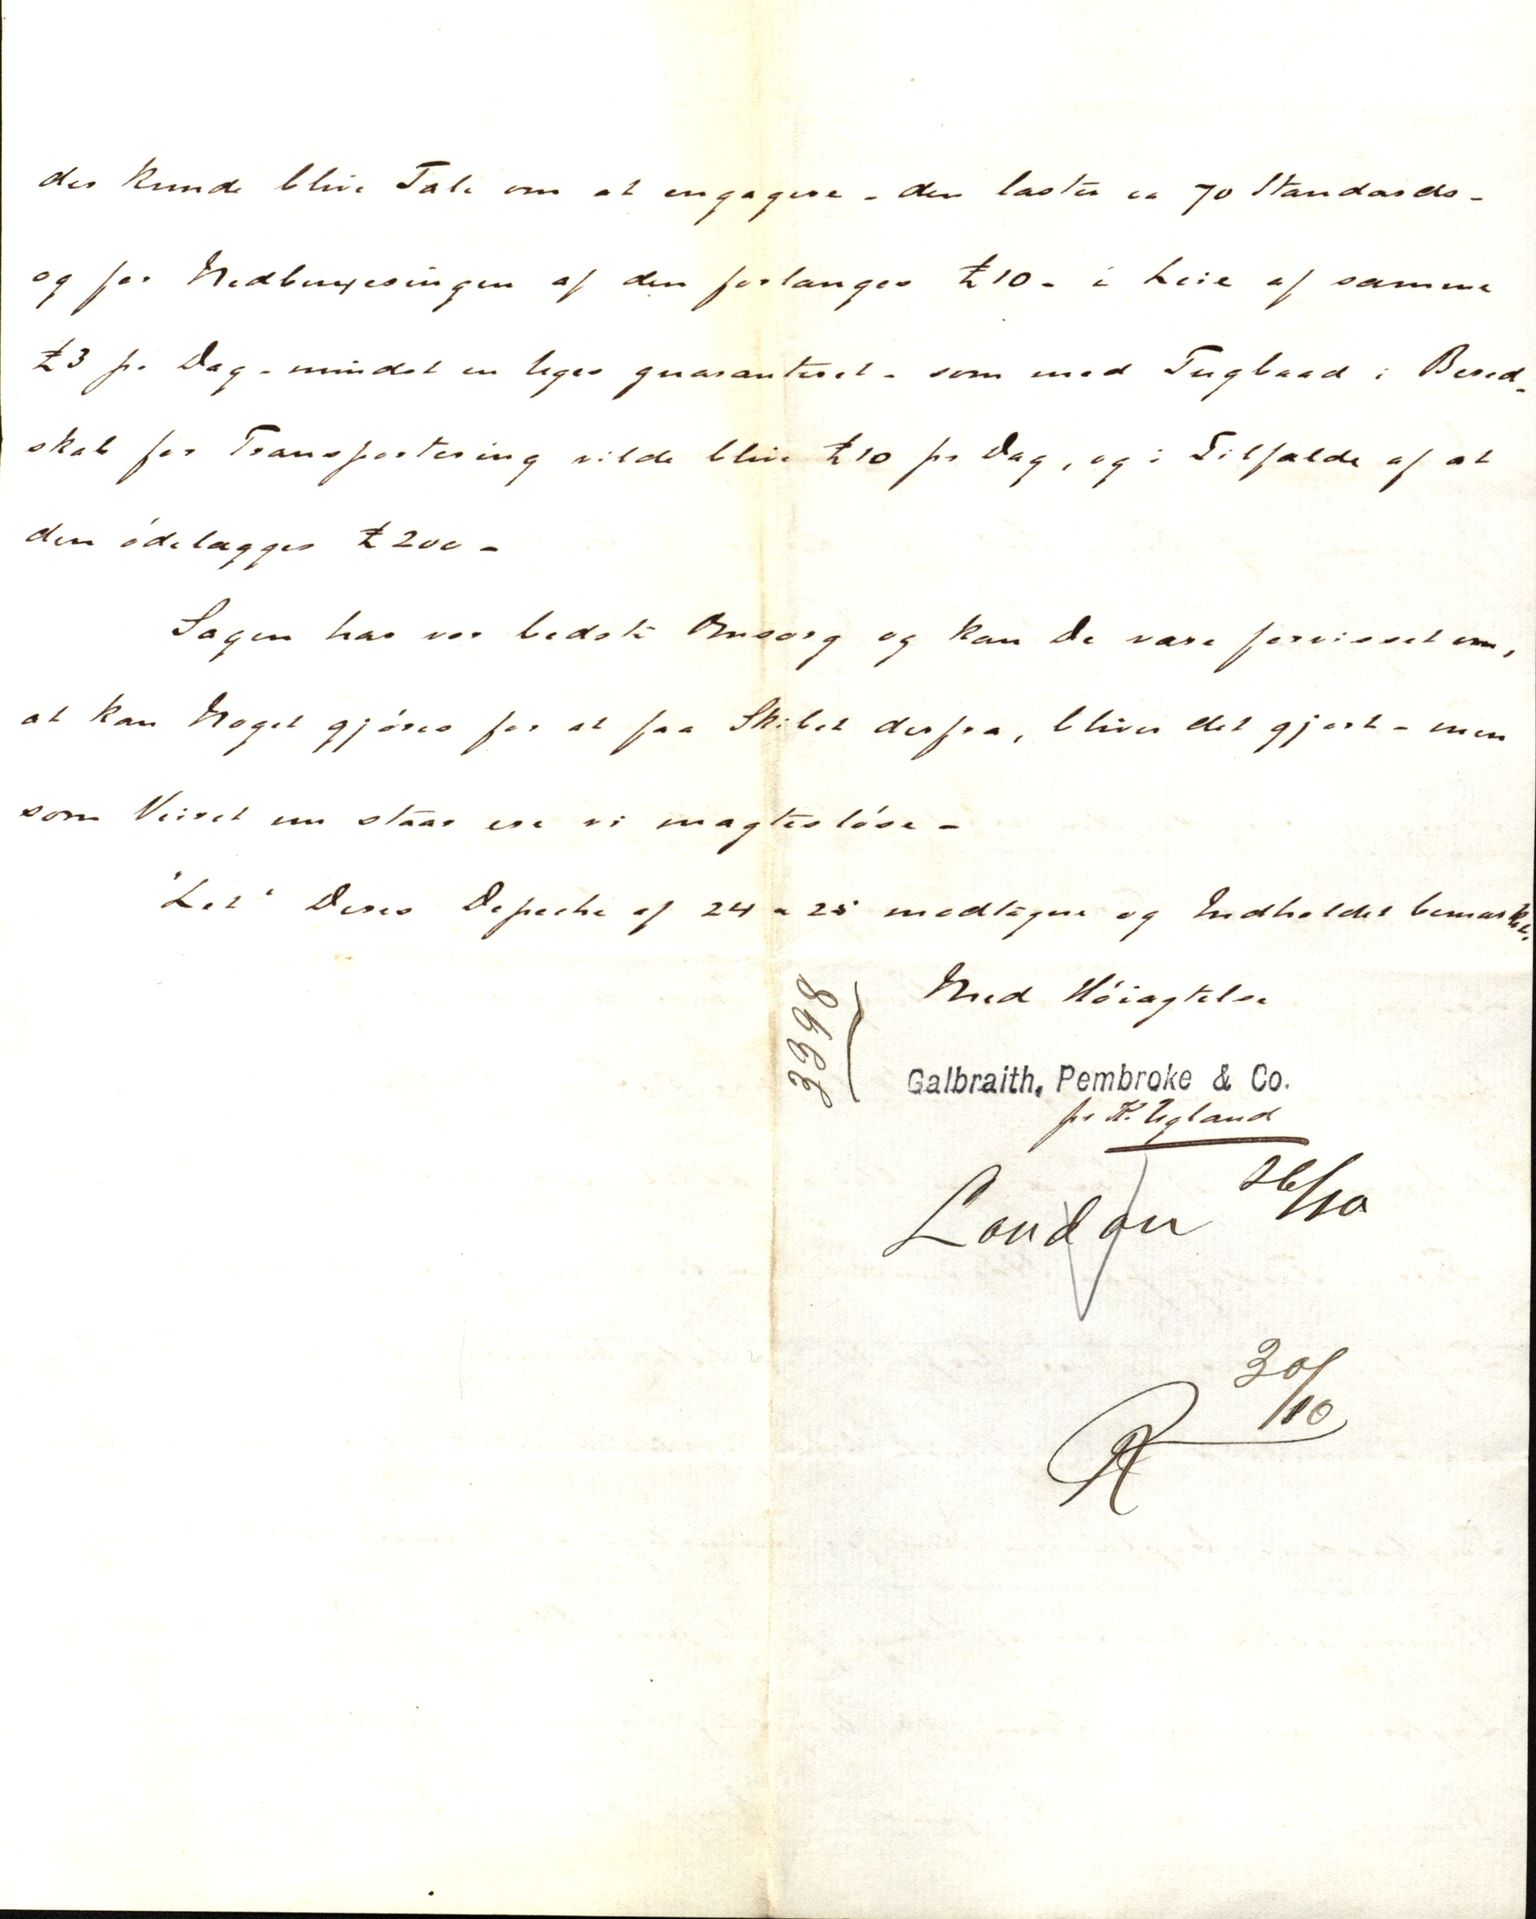 der kunde blive Tale om at engagere - den laster ca 70 Standards -
og for Nedbugseringen af den forlanges £10 - i Leie af samme
£3 pr Dag - mindst en Uges guaranteret - som med Tugbaad i Bered-
skab for Transportering vilde blive £10 pr Dag, og i Tilfælde af at
den ødelægges £200 -
Sagen har vor bedste Omsorg og kan De være forvisset om,
at kan Noget gjøres for at faa Skibet derfra, bliver det gjort - men
som Veiret nu staar ere vi magtesløse -
"Let" Deres Depeche af 24 a 25 modtagne og Indholdet bemærket.
Med Høiagtelse
3398
Galbraith, Pembroke & Co.
pr K. Ugland
London 26/10
30/10